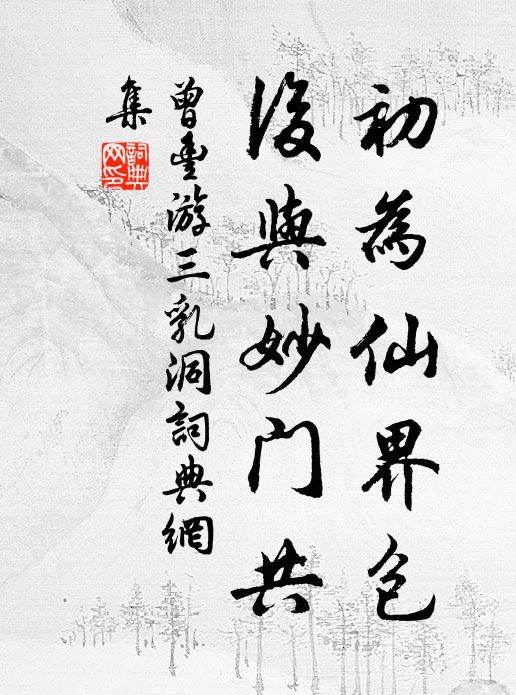 初為仙界包
後與妙门共
曾豐游三乳洞詞典網
集
詞典網印